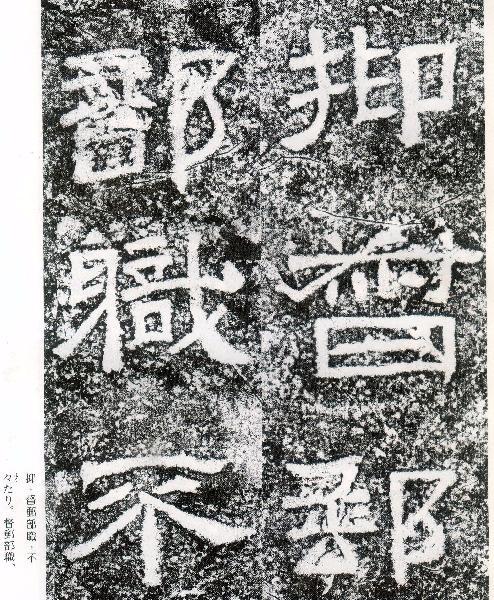 抑督郵
部職不
抑・督郵部職・不
々たり。督郵部職、